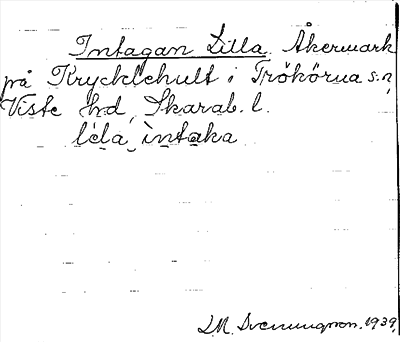 Intagan Lilla Åkermark
på Krycklehult i Trökörna s:n,
Viste hd, Skarab. l.
lela intaka
LM. Svenungsson. 1939.